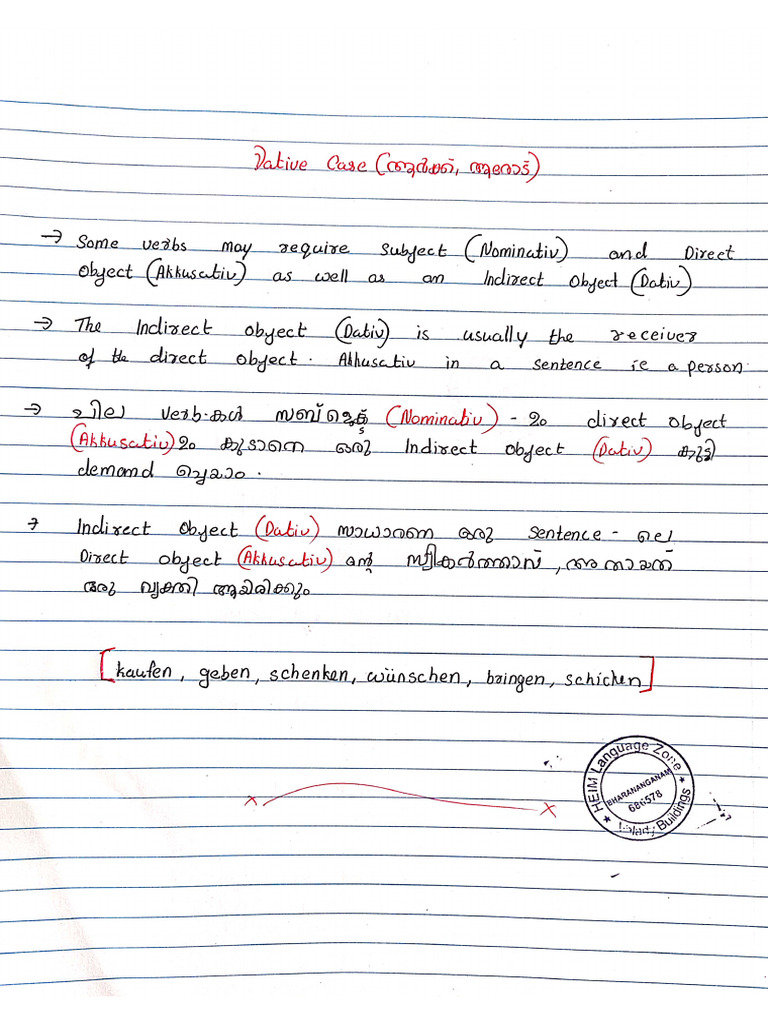 Dative Case (ആർക്ക്, ആരോട്)
→ Some verbs may require subject (Nominativ) and Direct
Object (Akkusativ) as well as an Indirect Object (Dativ)
→ The Indirect object (Dativ) is usually the receiver
of the direct object. Akkusativ in a sentence ie a person.
→ ചില verb-കൾ സബ്ജെക്ട് (Nominativ) - ഉം direct object
(Akkusativ) ഉം കൂടാതെ ഒരു Indirect object (Dativ) കൂടി
demand ചെയ്യാം.
→ Indirect Object (Dativ) സാധാരണ ഒരു Sentence - ലെ
Direct object (Akkusativ) ന്റെ സ്വീകർത്താവ്, അതായത്
ഒരു വ്യക്തി ആയിരിക്കും
[kaufen, geben, schenken, wünschen, bringen, schicken]
HEIM Language Zone
BHARANANGANAM
686578
Buildings